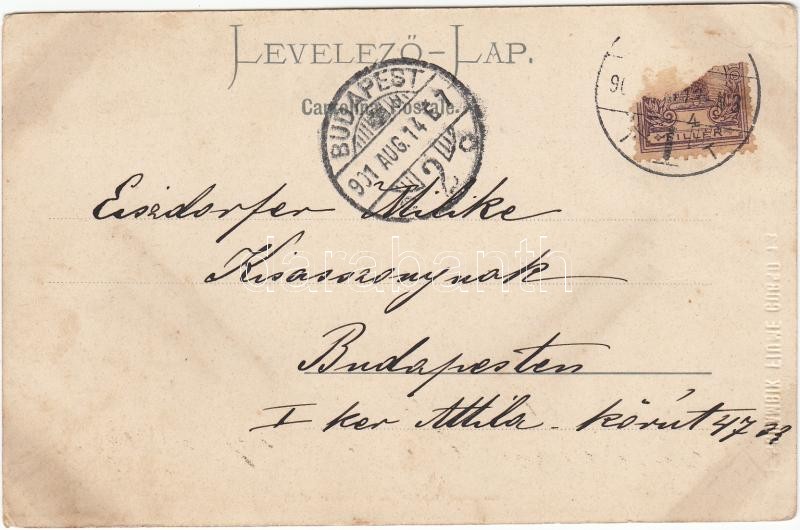 LEVELEZŐ-LAP.
Cartolina Postale.
BUDAPEST
901 AUG. 14
2
4
FILLÉR
Eiszdorfer Milike
Kisasszonynak
Budapesten
I ker Attila-körút 47
darabanth